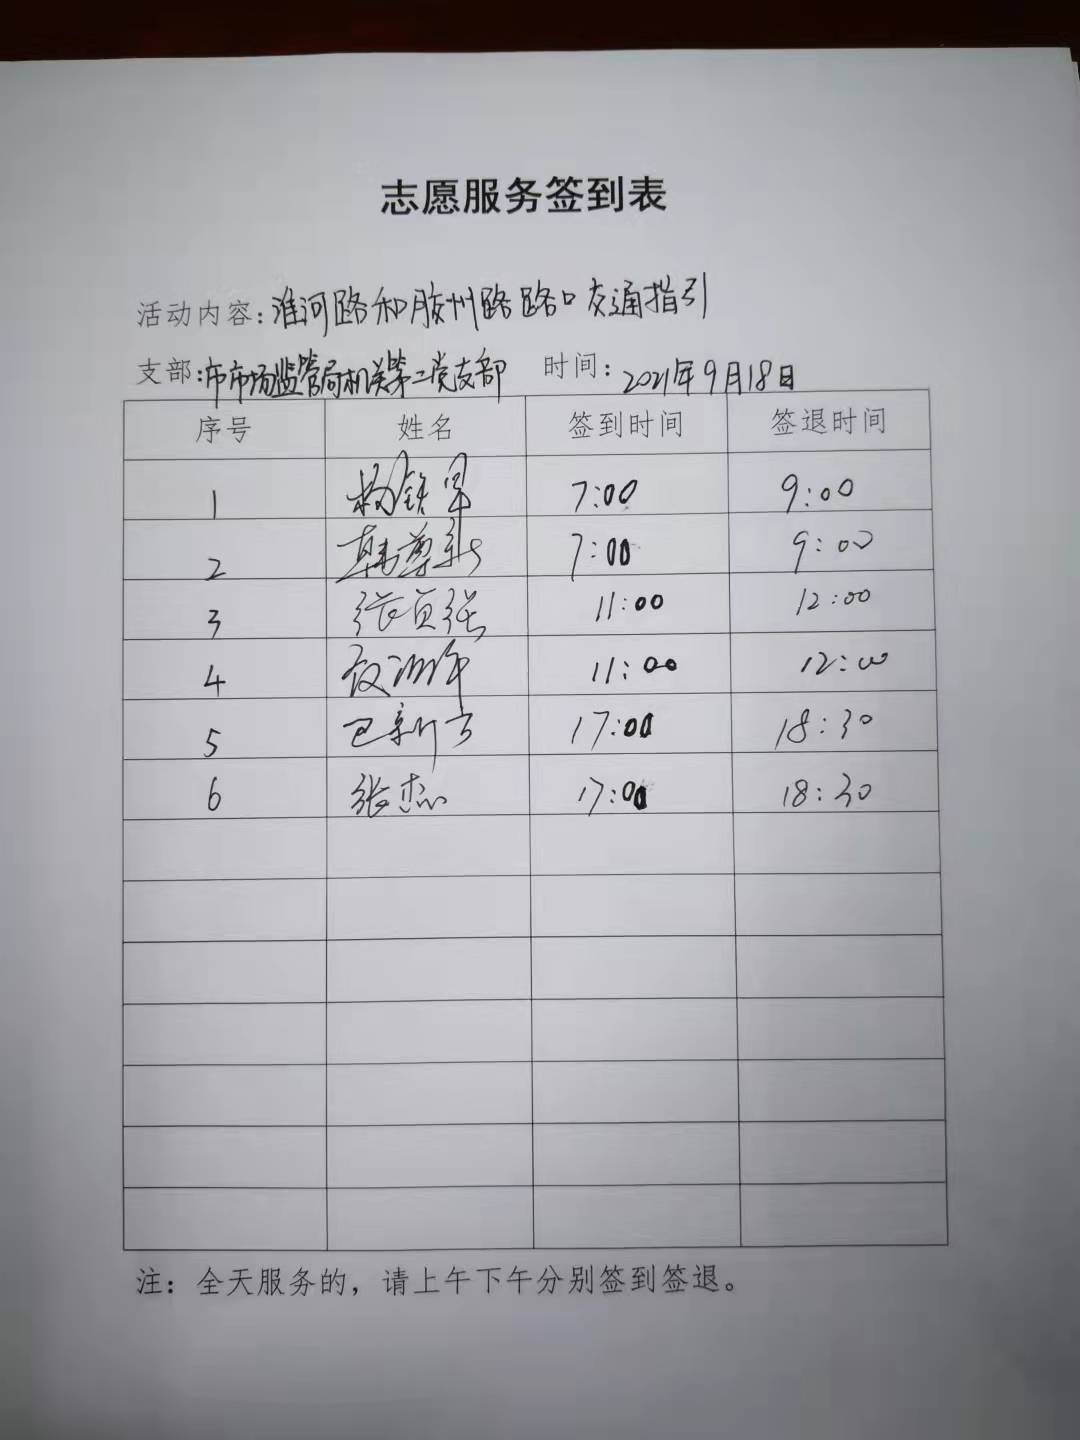 志愿服务签到表
活动内容:淮河路和胶州路路口交通指引
支部:市市场监管局机关第二党支部 时间:2021年9月18日
序号 姓名 签到时间 签退时间
1 7:00 9:00
2 韩尊新 7:00 9:00
3 张贞强 11:00 12:00
4 11:00 12:00
5 巴新方 17:00 18:30
6 张杰 17:00 18:30
注：全天服务的，请上午下午分别签到签退。